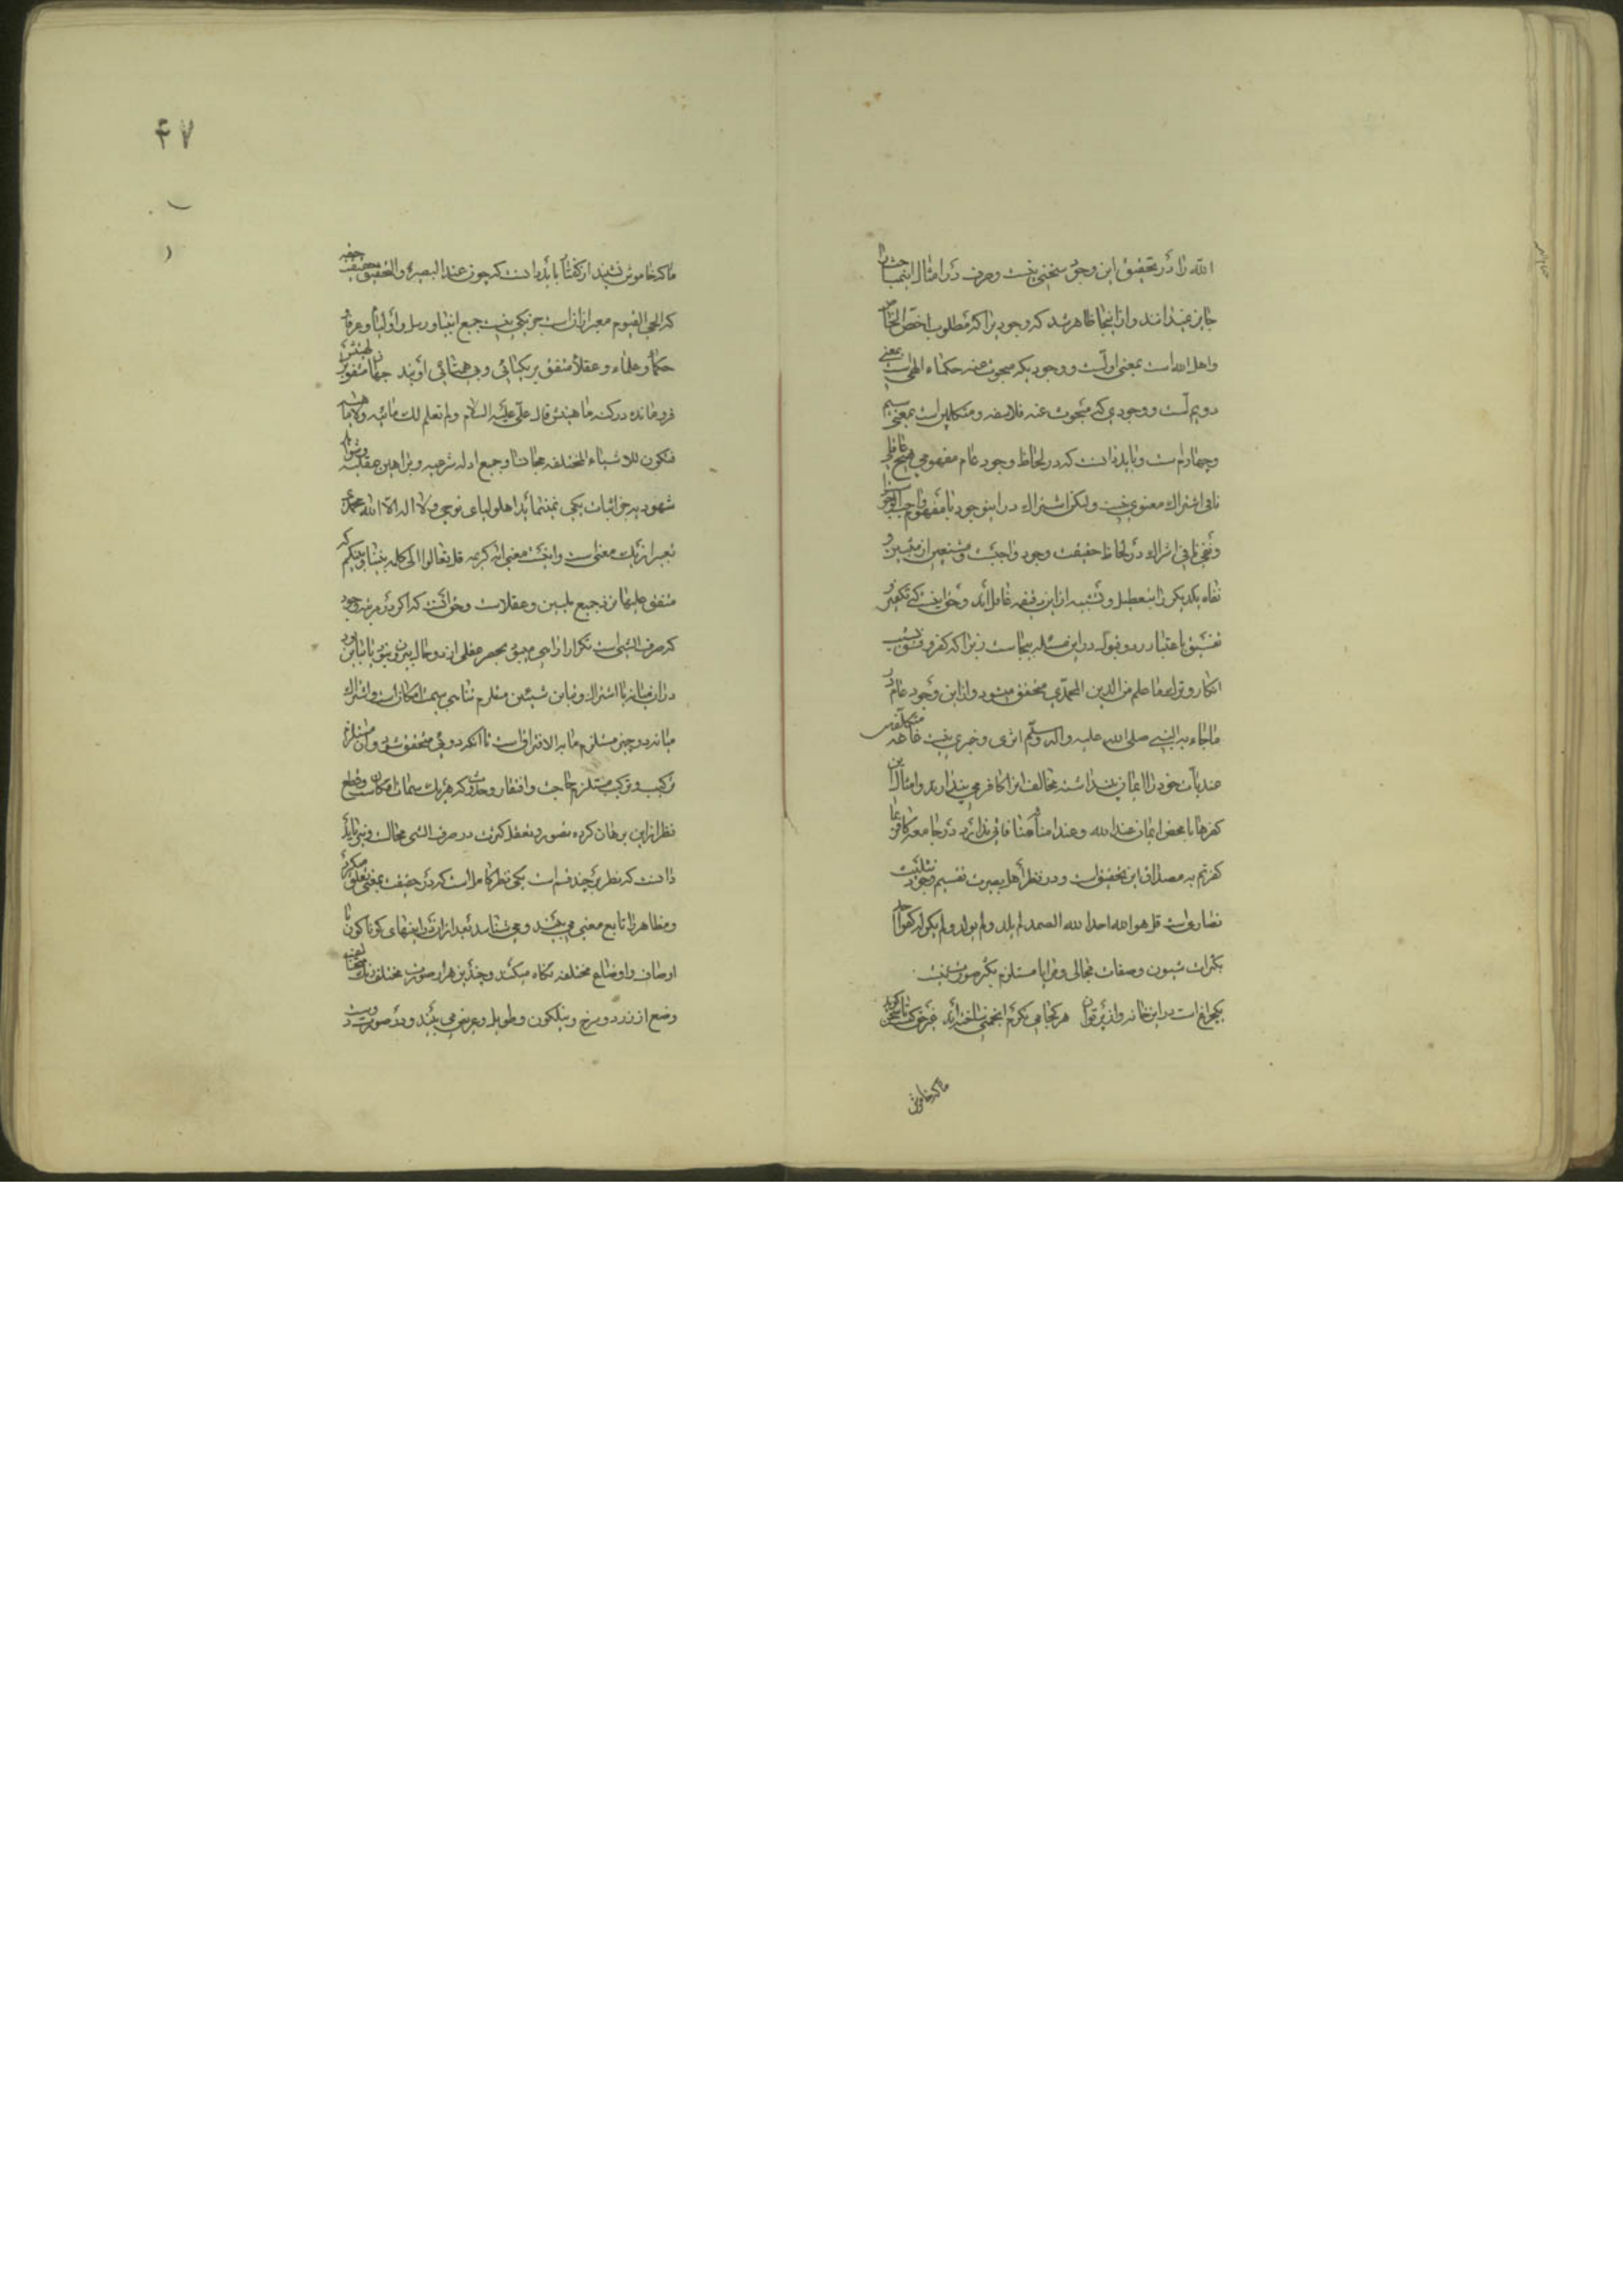 الله را در تحقیق این وجود سخنی نیست و حرف در امثال این مباحث را
جایز نمیدانند و از اینجا ظاهر شد که وجودیرا که مطلوب اخص الخاص
و اهل الله است بمعنی اولست و وجودیکه مبحوث عنه حکماء الهی است بمعنی
دویم است و وجودی که مبحوث عنه فلاسفه و متکلمین است بمعنی سیم
و چهارم است و باید دانست که در لحاظ وجود عام مفهومی هیچ عاقلی
نافی اشتراك معنوی نیست ولکن اشتراك در اینوجود با مفهوم واجب الوجود
و نفی نافی اشراك در لحاظ حقیقت وجود واجبست و متبعین از مثبتین و
نفاه یکدیکر را بتعطیل و تشبیه از این دقیقه غافل اند و حق اینست که تکفیر و
تفسیق باعتبار رد و قبول در این مسئله بیجاست زیرا که کفر و فسق بسبب
انکار و ترك ما علم من الدین المحمدی متحقق میشود و از این وجود عام در
ما جاء به النبی صلی الله علیه و آله و سلم اثری و خبری نیست غایة متکلفین
عندیات خود را ایمانی پنداشته مخالف انرا کافر می پندارند و امثال این
کفرها با محض ایمان عند الله و عند امنائه منافاتی ندارد در جامعه کافر بما
کفرتم به مصداق این تحقیق است و در نظر اهل بصیرت تقسیم وجود تثلیث
نصاری است قل هو الله احد الله الصمد لم یلد و لم یولد و لم یکن له کفوا احد
بکثرات شیون و صفات مجالی و مرایا مستلزم تکثر صور نیست
یکچراغ است در این خانه و از پرتو ان هر کجا می نکرم انجمنی ساخته اند غرض که تا کوید سخن
ما که خاموش
ما که خاموش نشیند از کفتار باید دانست که چون عند البصیرة و التحقیق حقیقت حقه
که الحی القیوم معبر از انست جز یکی نیست جمیع انبیا و رسل و اولیا و عرفا و
حکما و علماء و عقلا متفق بر یکتائی و بی همتائی اویند جهان متفق بر الهیتش
فرو مانده در کنه ماهیتش قال علی علیه السلام و لم تعلم لك مائیة و لا ماهیة
فتکون للاشیاء المختلفة مجانسا و جمیع ادله شرعیه و براهین عقلیه و شواهد
شهودیه جز اثبات یکی نمینماید اهل و لبای توحید و لا اله الا الله همه
تعبیر از یك معنی است و اینست معنی ایه کریمه قل تعالوا الی کلمة بیننا و بینکم که
متفق علیها نزد جمیع ملیین و عقلاست و حق انست که اکر در مرتبه وجود
که صرف الشی است تکرار اراحی مسبق بحصر عقلی از دو حال بیرون نبود یا تباین
در ان متا یا اشتراك و تباین شیئین مستلزم تناهی سمت امکان است و اشتراك
میانه دو چیز مستلزم ما به الافتراق است تا انکه دوئی متحقق شود و ان مستلزم
ترکیب و ترکیب مستلزم حاجت و افتقار و حدوث که هر یك سمات امکان است و قطع
نظر از این برهان کرده تصور و تعقل کثرت در صرف الشی محال است و نیز باید
دانست که نظر بر چند قسم است یکی نظر کامل است که در حقیقت بمعنی تعلق میکیرد
و مظاهر را تابع معنی می بیند و می شناسد بعد از ان در اینهای کوناکون با
اوصاف و اوضاع مختلفه نکاه میکند و چندین هزار صورت مختلف بیك
وضع از زرد و سرخ و نیلکون و طویل و عریض می بیند و در صورت
۴۷